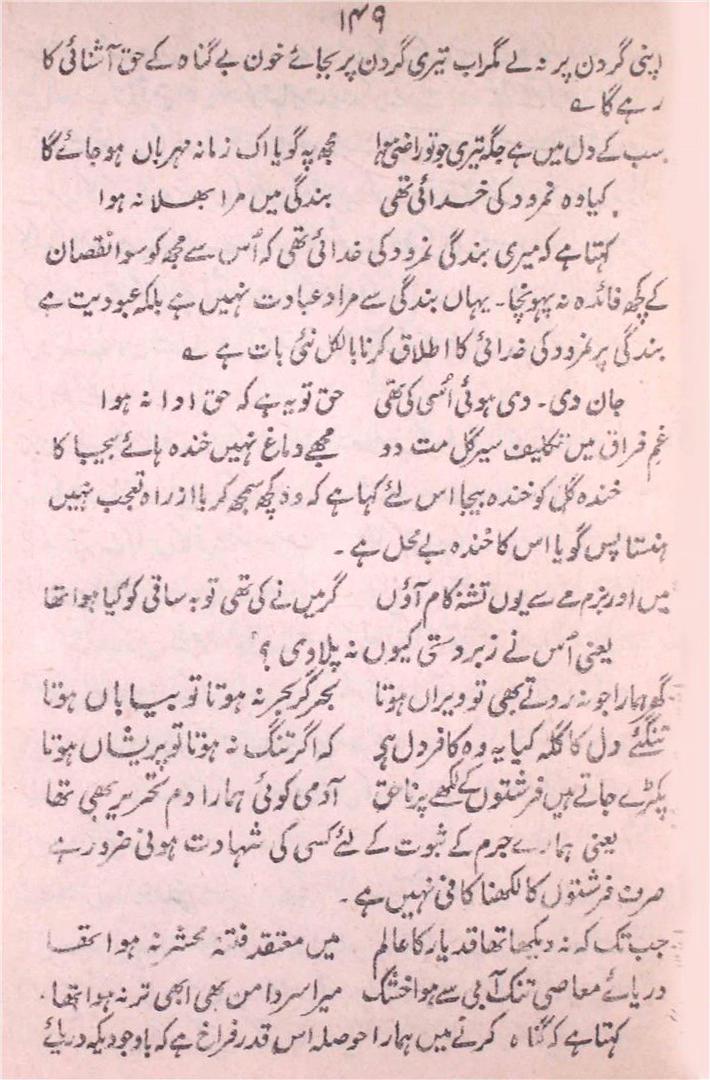 ۱۴۹
اپنی گردن پر نہ لے مگر اب تیری گردن پر بجائے خون بے گناہ کے حق آشنائی کا
رہے گا ؎
سب کے دل میں ہے جگہ تیری جو تو راضی ہوا مجھ پہ گویا اک زمانہ مہرباں ہو جائے گا
کیا وہ نمرود کی خدائی تھی بندگی میں مرا بھلا نہ ہوا
کہتا ہے کہ میری بندگی نمرود کی خدائی تھی کہ اُس سے مجھ کو سوا نقصان
کے کچھ فائدہ نہ پہونچا۔ یہاں بندگی سے مراد عبادت نہیں ہے بلکہ عبودیت ہے
بندگی پر نمرود کی خدائی کا اطلاق کرنا بالکل نئی بات ہے ؎
جان دی۔ دی ہوئی اُسی کی تھی حق تو یہ ہے کہ حق ادا نہ ہوا
غمِ فراق میں تکلیف سیر گل مت دو مجھے دماغ نہیں خندہ ہائے بیجا کا
خندہ گل کو خندہ بیجا اس لئے کہا ہے کہ وہ کچھ سمجھ کر یا از راہ تعجب نہیں
ہنستا پس گویا اس کا خندہ بے محل ہے۔
میں اور بزم مے سے یوں تشنہ کام آؤں گر میں نے کی تھی توبہ ساقی کو کیا ہوا تھا
یعنی اُس نے زبردستی کیوں نہ پلا دی ؟
گھر ہمارا جو نہ روتے بھی تو ویراں ہوتا بحر گر بحر نہ ہوتا تو بیاباں ہوتا
تنگئے دل کا گلہ کیا یہ وہ کافر دل ہے کہ اگر تنگ نہ ہوتا تو پریشاں ہوتا
پکڑے جاتے ہیں فرشتوں کے لکھے پر ناحق آدمی کوئی ہمارا دم تحریر بھی تھا
یعنی ہمارے جرم کے ثبوت کے لئے کسی کی شہادت ہونی ضرور ہے
صرف فرشتوں کا لکھنا کافی نہیں ہے۔
جب تک کہ نہ دیکھا تھا قد یار کا عالم میں معتقد فتنۂ محشر نہ ہوا تھا
دریائے معاصی تنک آبی سے ہوا خشک میرا سر دامن بھی ابھی تر نہ ہوا تھا۔
کہتا ہے کہ گناہ کرنے میں ہمارا حوصلہ اس قدر فراخ ہے کہ باوجودیکہ دریائے